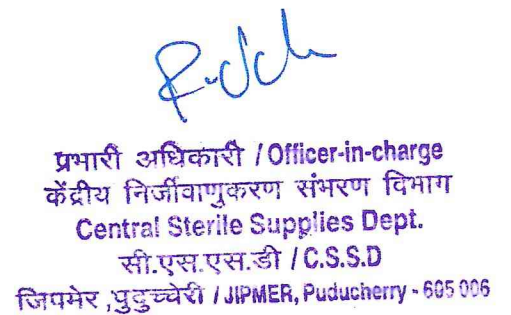 प्रभारी अधिकारी / Officer-in-charge
केंद्रीय निर्जीवाणुकरण संभरण विभाग
Central Sterile Supplies Dept.
सी.एस.एस.डी / C.S.S.D
जिपमेर ,पुदुच्चेरी / JIPMER, Puducherry - 605 006